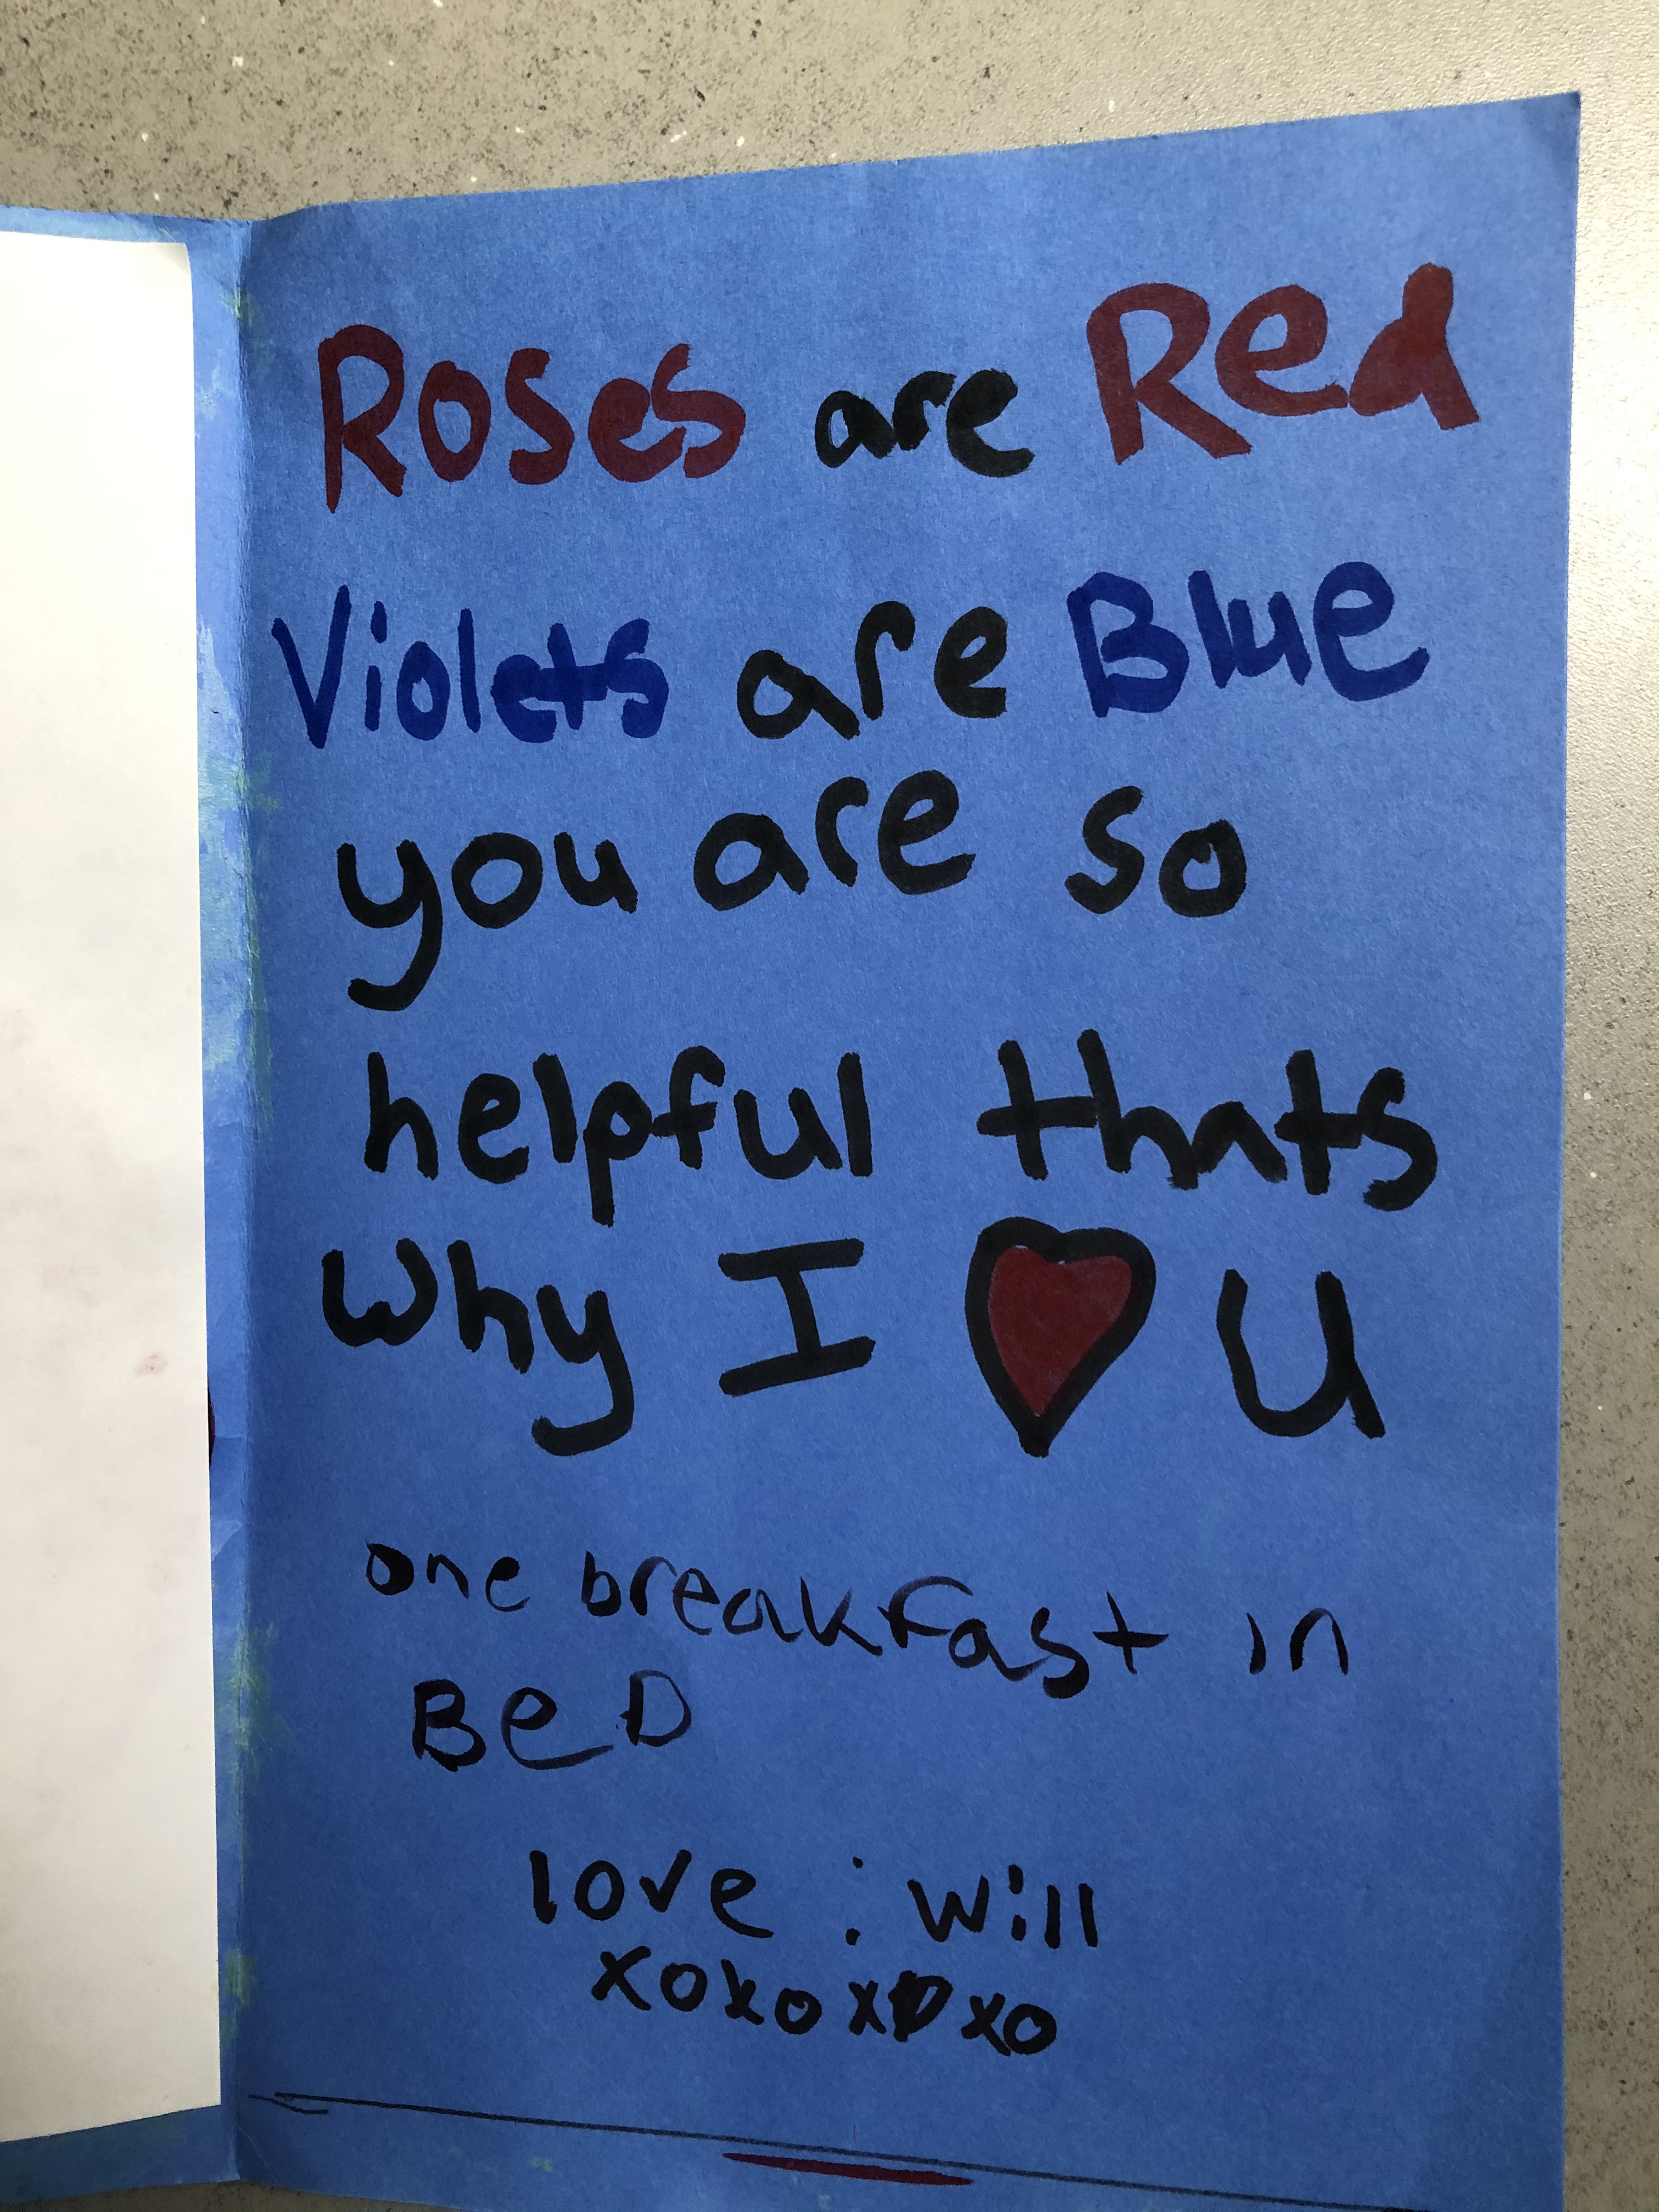 Roses are Red
Violets are Blue
you are so
helpful thats
why I ❤ U
one breakfast in
BeD
love : will
xoxoxoxo